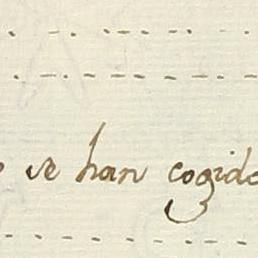 se han cogido